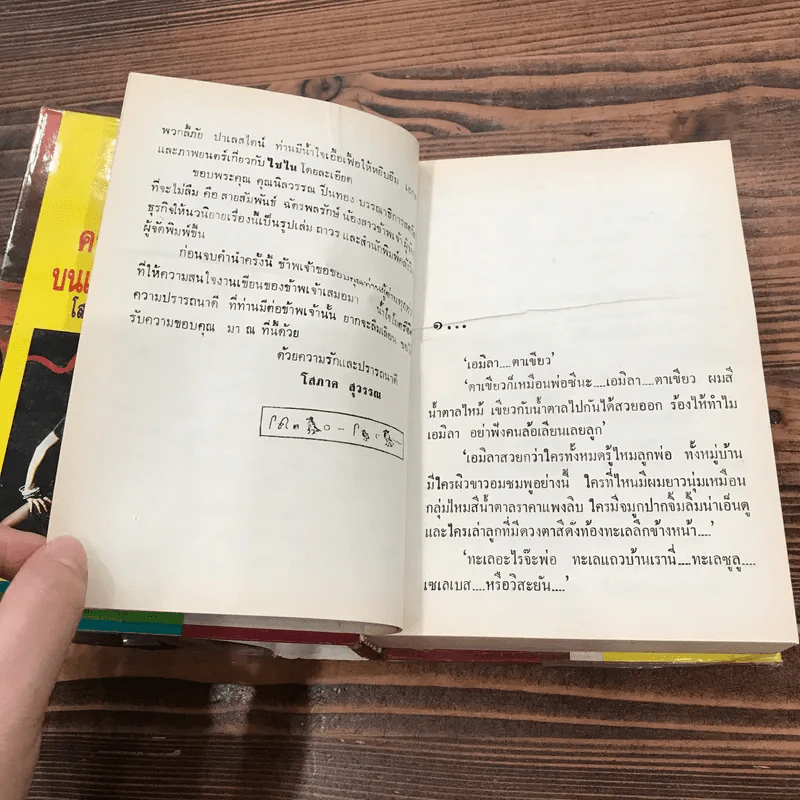 ค
บนเ
โส
พวกลี้ภัย ปาเลสไตน์ ท่านมีน้ำใจเอื้อเฟื้อให้หยิบยืม
และภาพยนตร์เกี่ยวกับ ไซไน โดยละเอียด
ขอบพระคุณ คุณนิลวรรณ ปิ่นทอง บรรณาธิการ
ที่จะไม่ลืม คือ สายสัมพันธ์ ฉัตรพลรักษ์ น้องสาวข้าพเจ้า
ธุรกิจให้นวนิยายเรื่องนี้เป็นรูปเล่ม ถาวร และสำนักพิมพ์
ผู้จัดพิมพ์ขึ้น
ก่อนจบคำนำครั้งนี้ ข้าพเจ้าขอขอบคุณท่านผู้อ่าน
ที่ให้ความสนใจงานเขียนของข้าพเจ้าเสมอมา น้ำใจไมตรี
ความปรารถนาดี ที่ท่านมีต่อข้าพเจ้านั้น ยากจะลืมเลือน
รับความขอบคุณ มา ณ ที่นี้ด้วย
ด้วยความรักและปรารถนาดี
โสภาค สุวรรณ
๑...
'เอมิลา....ตาเขียว'
'ตาเขียวก็เหมือนพ่อซีนะ....เอมิลา....ตาเขียว ผมสี
น้ำตาลไหม้ เขียวกับน้ำตาลไปกันได้สวยออก ร้องไห้ทำไม
เอมิลา อย่าฟังคนล้อเลียนเลยลูก'
'เอมิลาสวยกว่าใครทั้งหมดรู้ไหมลูกพ่อ ทั้งหมู่บ้าน
มีใครผิวขาวอมชมพูอย่างนี้ ใครที่ไหนมีผมยาวนุ่มเหมือน
กลุ่มไหมสีน้ำตาลราคาแพงลิบ ใครมีจมูกปากจิ้มลิ้มน่าเอ็นดู
และใครเล่าลูกที่มีดวงตาสีดังท้องทะเลลึกข้างหน้า....'
'ทะเลอะไรจ๊ะพ่อ ทะเลแถวบ้านเรานี่....ทะเลซูลู....
เซเลเบส....หรือวิสะยัน....'